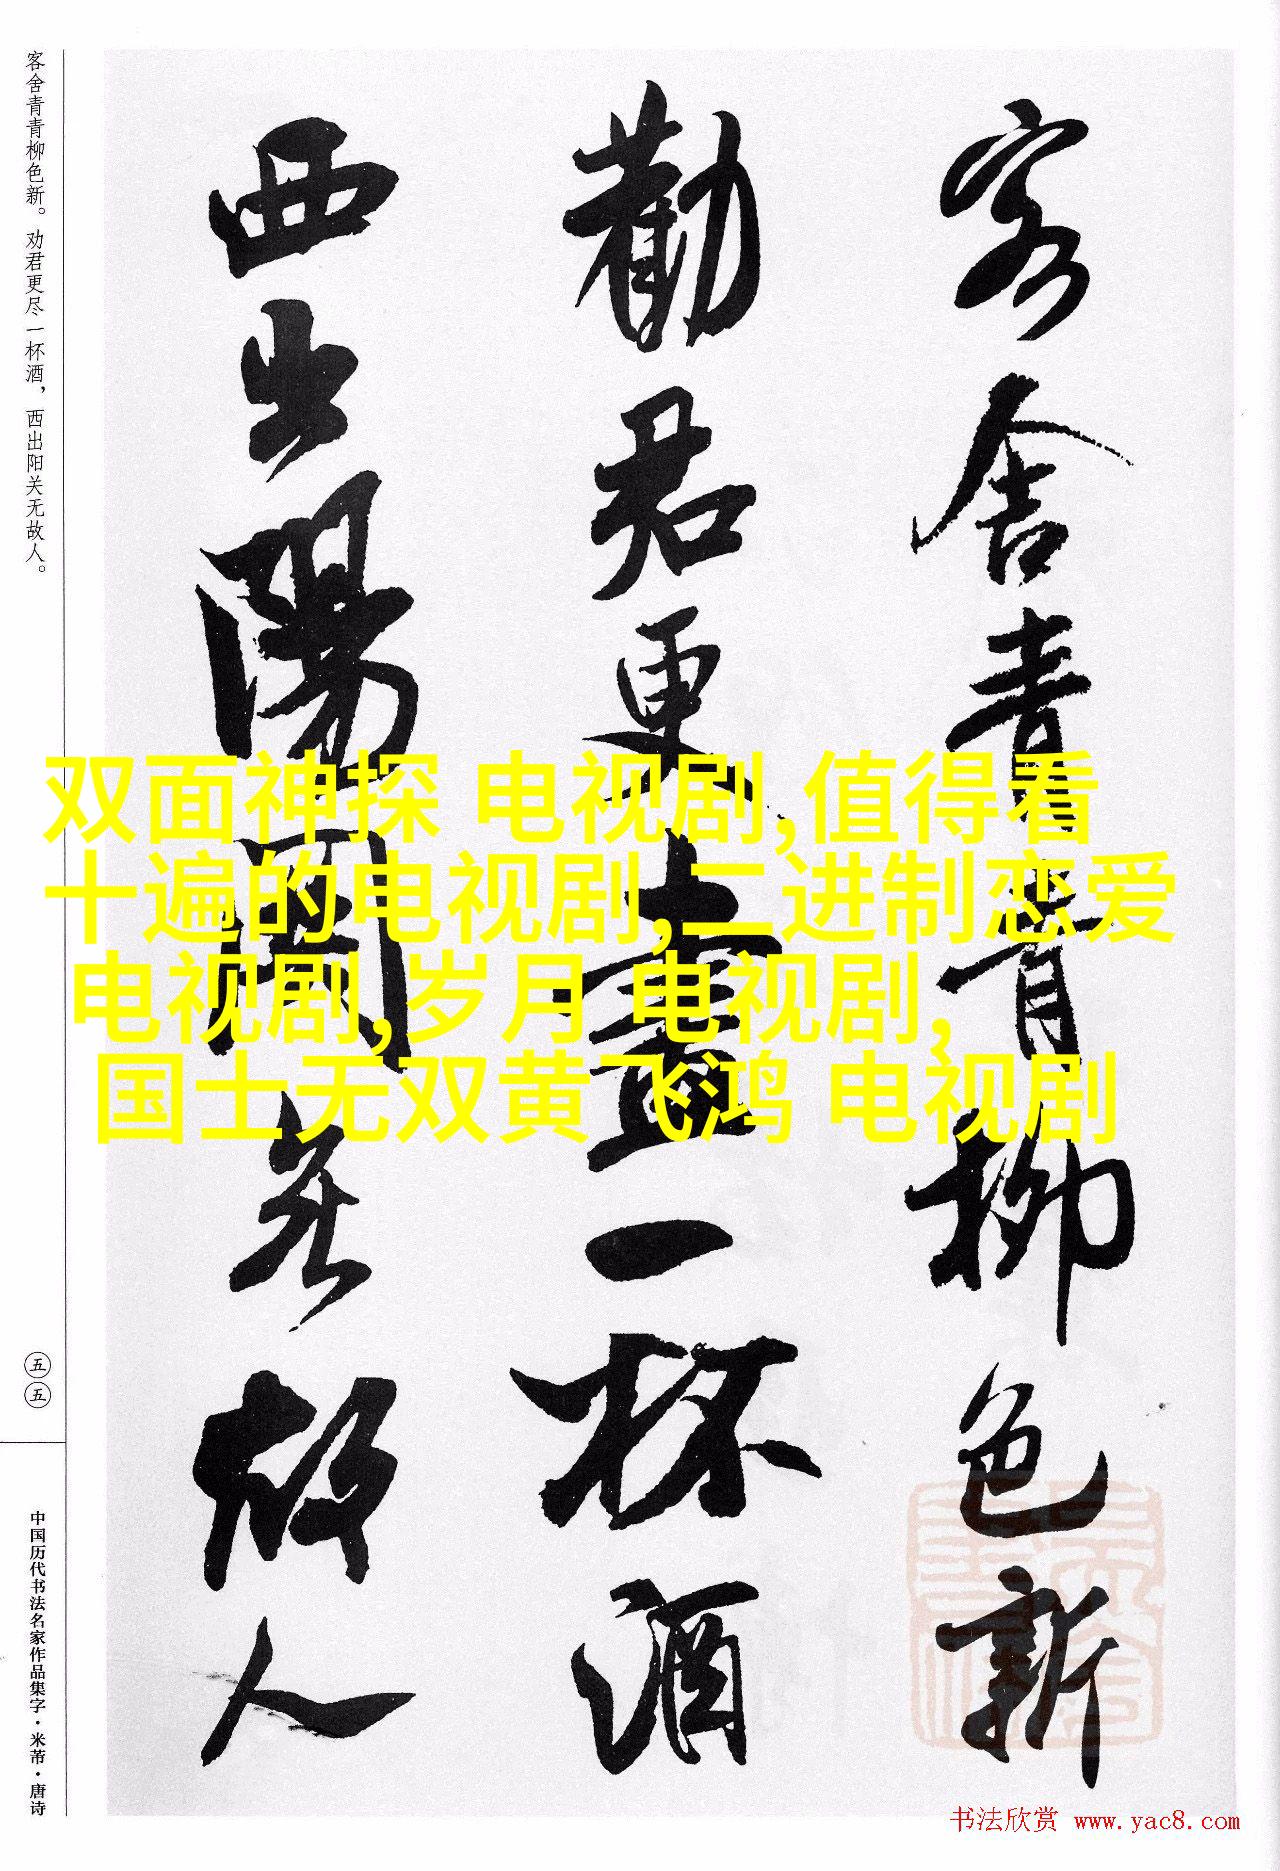 客舍青青柳色新
勸君更盡一杯酒
西出陽關無故人
客舍青青柳色新。劝君更尽一杯酒，西出阳关无故人。
五五
中国历代书法名家作品集字·米芾·唐诗
双面神探 电视剧,值得看
十遍的电视剧,二进制恋爱
电视剧,岁月 电视剧,
国士无双黄飞鸿 电视剧
书法欣赏 www.yac8.com